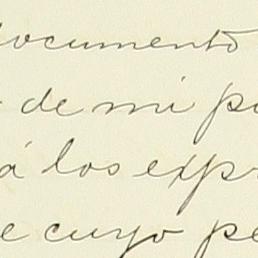 documento
de mi p
á los expr
e cuyo pe